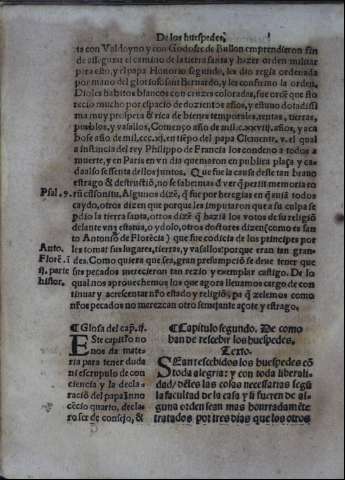 De los huespedes.
ta con Valdoyno y con Godofre de Bullon emprendieron fin
de assegurar el camino de la tierra santa y hazer orden militar
para esto, y el papa Honorio segundo, les dio regla ordenada
por mano del glorioso san Bernardo, y les confirmo la orden.
Dioles habitos blancos con cruzes coloradas, fue ordē q̄ flo
recio mucho por espacio de dozientos años, y estuuo dotadissi
ma muy prospera & rica de bienes temporales, rentas, tierras,
pueblos, y vasallos, Començo año de mil.c.xxvij. años, y aca
bose año de mil.ccc.xj. en tiēpo del papa Clemente. v. el qual
a instancia del rey Philippo de Francia los condeno a todos a
muerte, y en Paris en vn dia quemaron en publica plaça y ca
daalso sesenta dellos juntos. Que fue la causa deste tan brauo
estrago & destruciō, no se sabe mas d̄ ver q̄
Psal. 9. Algunos dizē, q̄ fue por heregias en q̄ auiā todos
caydo, otros dizen que porque les imputaron que a su culpa se
pdio la tierra santa, otros dizē q̄ haziā los votos de su religiō
delante vna estatua, o ydolo, otros doctores dizen (como es san
Anto. to Antonio de Florēcia) que fue codicia de los principes por
Florē. ī les tomar sus lugares, tierras, y vasallos porque eran tan gran-
des. Como quiera que sea, gran presumpciō se deue tener que
ij. parte sus pecados merecieron tan rezio y exemplar castigo. De lo
histor. qual nos aprouechemos los que agora lleuamos cargo de con
tinuar y acrescentar nr̄o estado y religiō, pa q̄ zelemos como
nr̄os pecados no merezcan otro semejante açote y estrago.
¶ Glosa del cap. ij.
Este capitulo no
nos da mate-
ria para tener duda
ni escrupulo de con
ciencia y la declara
raciō del papa Inno
cēcio quarto, decla
ro ser de consejo, &
¶ Capitulo segundo. De como
han de rescebir los huespedes.
Texto.
Sean rescebidos los huespedes cō
toda alegria: y con toda liberali-
dad / dēles las cosas necessarias segū
la facultad de la casa y si fueren de al-
guna orden sean mas honrradamēte
tratados por tres dias que los otros